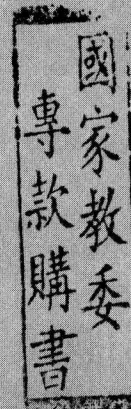 國家教委
專款購書